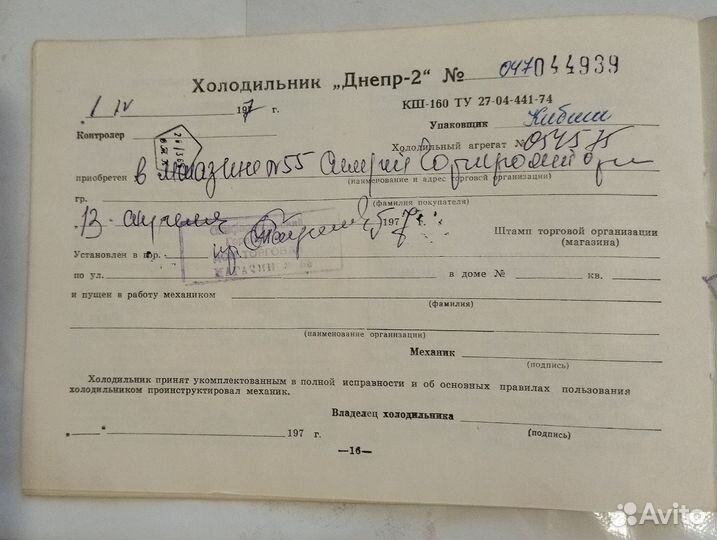 Холодильник „Днепр-2“ № 047044939
1 IV 197 г.
КШ-160 ТУ 27-04-441-74
Контролер
Упаковщик
Холодильный агрегат №
приобретен в магазине № 55
(наименование и адрес торговой организации)
гр.
(фамилия покупателя)
13 апреля 197 г.
Штамп торговой организации
(магазина)
Установлен в гор.
МАГАЗИН
по ул. в доме № кв.
и пущен в работу механиком
(фамилия)
(наименование организации)
Механик
(подпись)
Холодильник принят укомплектованным в полной исправности и об основных правилах пользования
холодильником проинструктировал механик.
Владелец холодильника
(подпись)
„ “ 197 г.
—16—
Avito